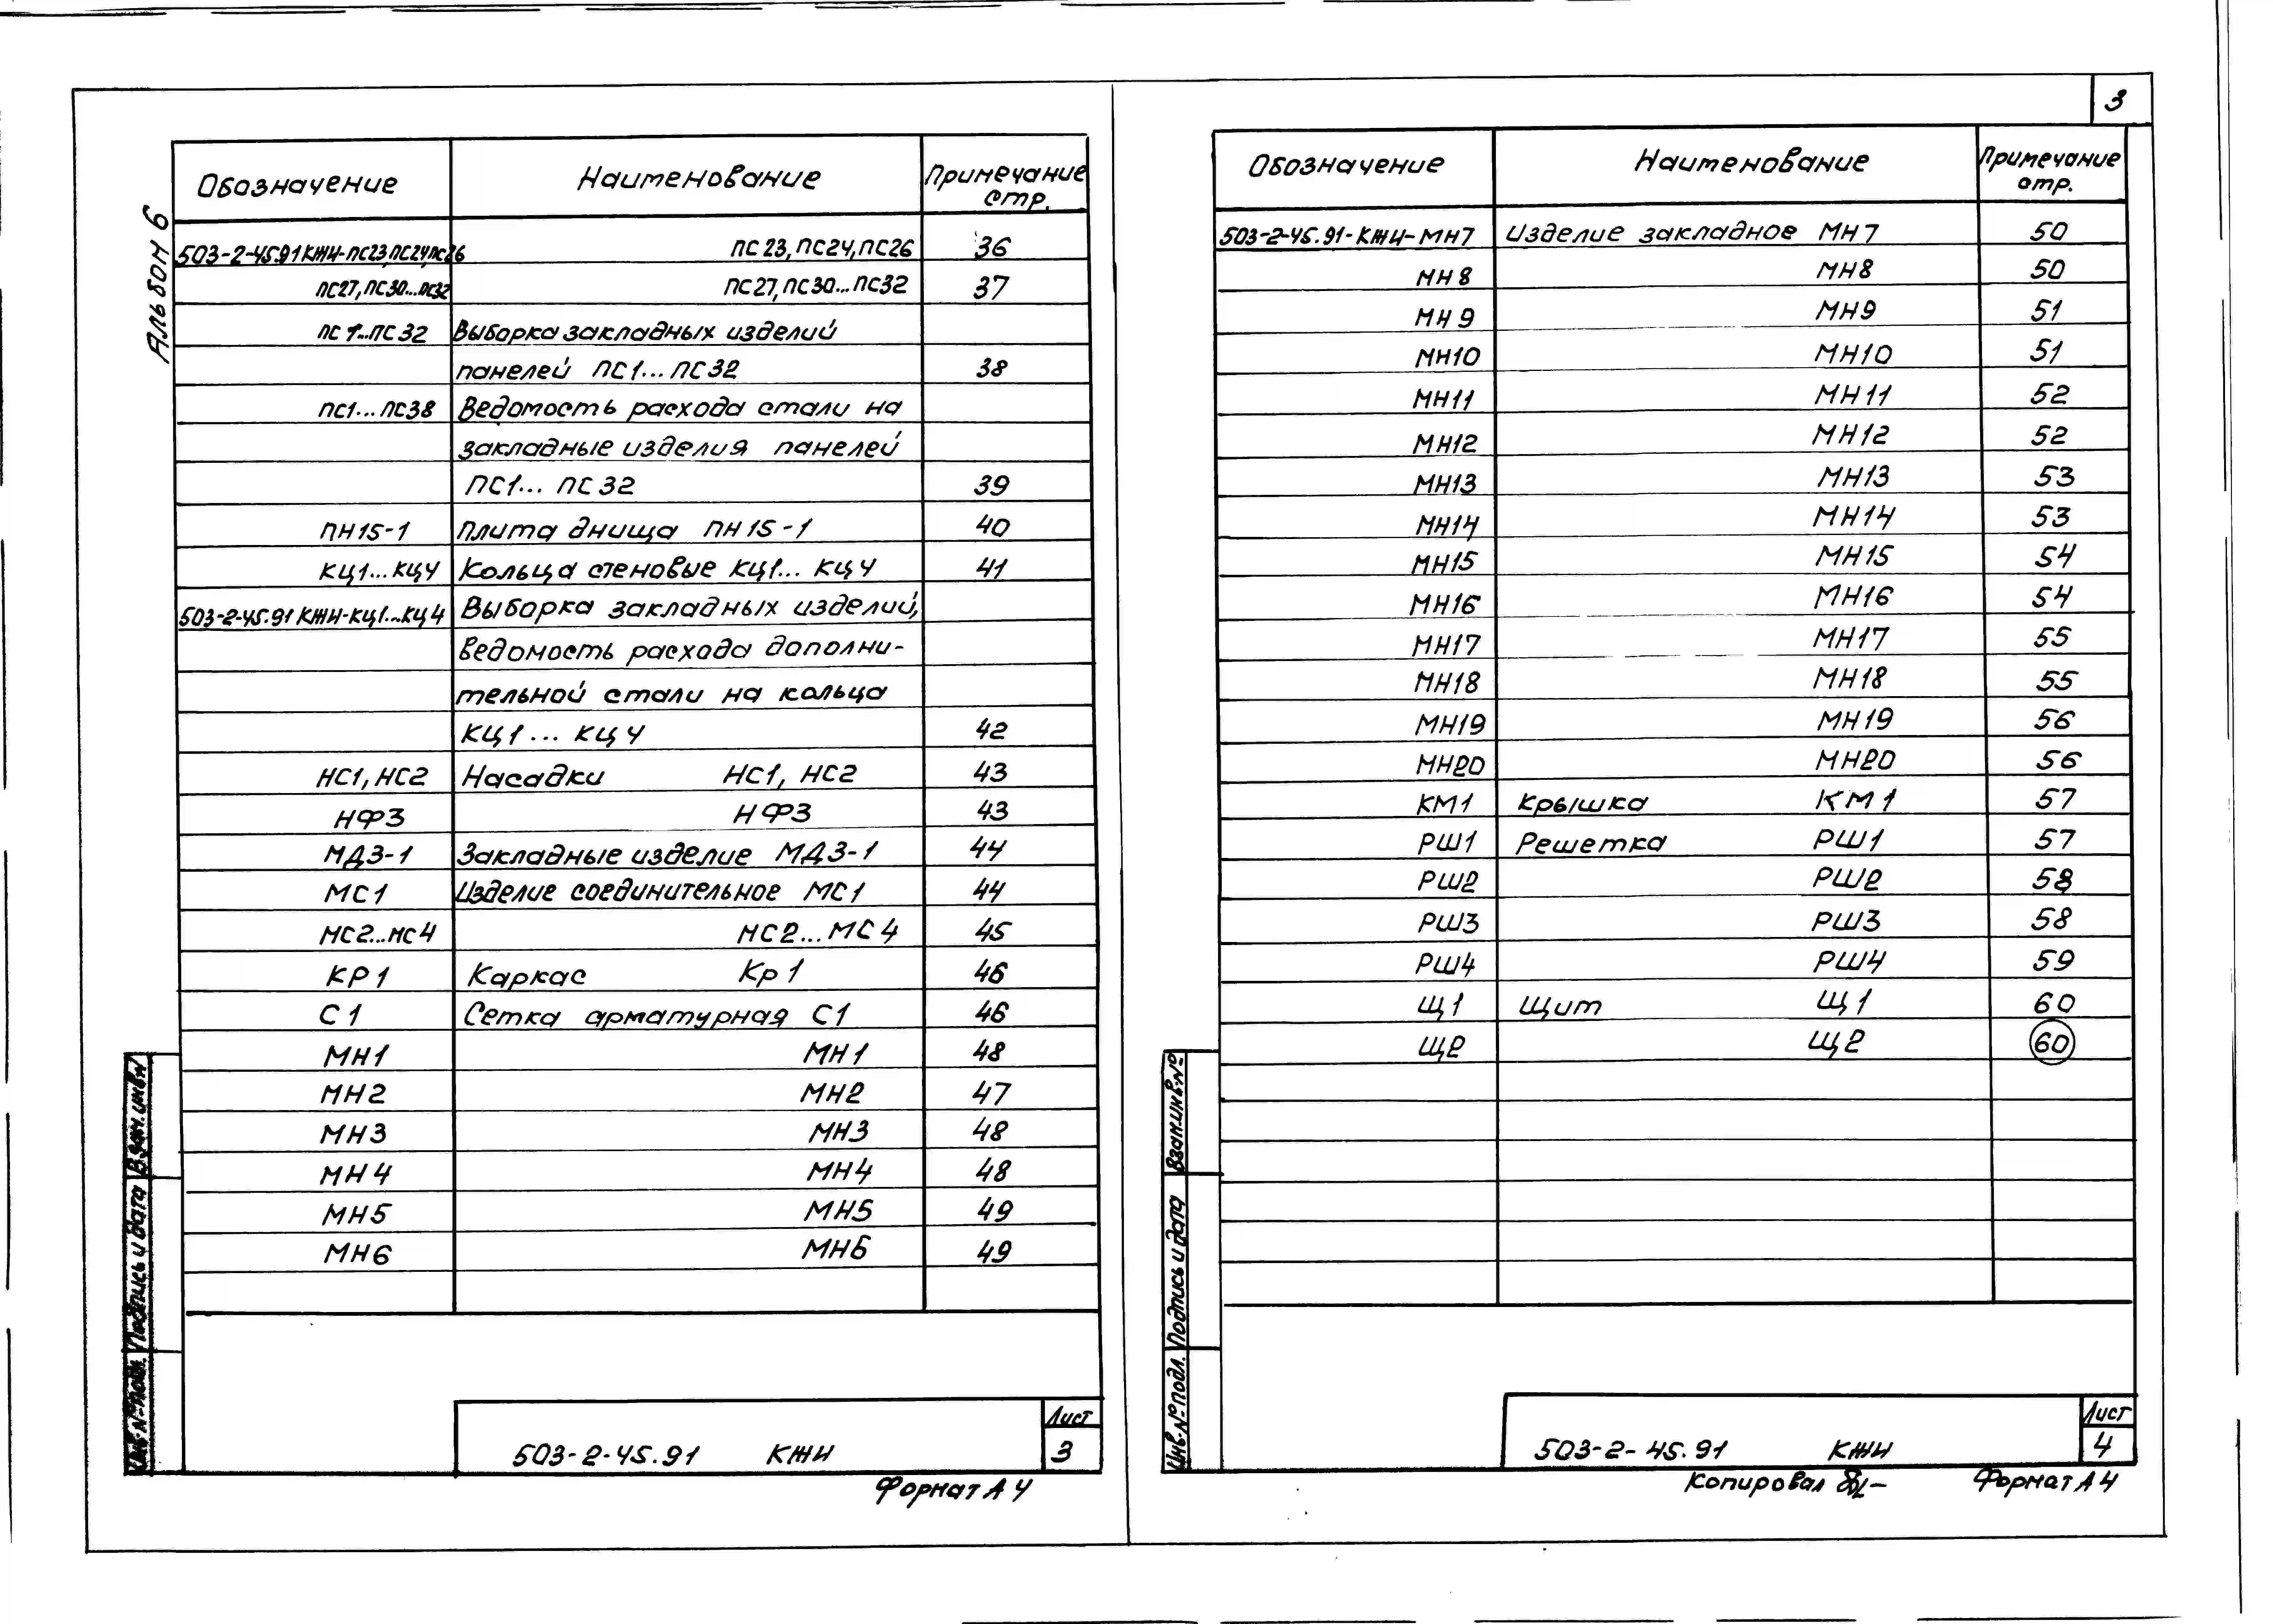 3
Альбом 6
Обозначение Наименование Примечание стр.
503-2-45.91 КЖИ-ПС23,ПС24,ПС26 ПС 23, ПС24, ПС26 36
ПС27, ПС30...ПС32 ПС27, ПС30...ПС32 37
ПС 1...ПС 32 Выборка закладных изделий
панелей ПС1...ПС32 38
ПС1...ПС38 Ведомость расхода стали на
закладные изделия панелей
ПС1... ПС 32 39
ПН15-1 Плита днища ПН 15-1 40
КЦ1...КЦ4 Кольца стеновые КЦ1... КЦ4 41
503-2-45.91 КЖИ-КЦ1...КЦ4 Выборка закладных изделий,
Ведомость расхода дополни-
тельной стали на кольца
КЦ1... КЦ4 42
НС1, НС2 Насадки НС1, НС2 43
НФ3 НФ3 43
МД3-1 Закладные изделие МД3-1 44
МС1 Изделие соединительное МС1 44
МС2...МС4 МС2...МС4 45
КР1 Каркас Кр 1 46
С 1 Сетка арматурная С1 46
МН1 МН1 48
МН2 МН2 47
МН3 МН3 48
МН4 МН4 48
МН5 МН5 49
МН6 МН6 49
Инв.№ подл. Подпись и дата Взам. инв.№
503-2-45.91 КЖИ
Лист
3
Формат А4
Обозначение Наименование Примечание стр.
503-2-45.91-КЖИ-МН7 Изделие закладное МН7 50
МН8 МН8 50
МН9 МН9 51
МН10 МН10 51
МН11 МН11 52
МН12 МН12 52
МН13 МН13 53
МН14 МН14 53
МН15 МН15 54
МН16 МН16 54
МН17 МН17 55
МН18 МН18 55
МН19 МН19 56
МН20 МН20 56
КМ1 Крышка КМ1 57
РШ1 Решетка РШ1 57
РШ2 РШ2 58
РШ3 РШ3 58
РШ4 РШ4 59
Щ1 Щит Щ1 60
Щ2 Щ2 60
Инв.№ подл. Подпись и дата Взам.инв.№
503-2-45.91 КЖИ
Лист
4
Копировал Формат А4